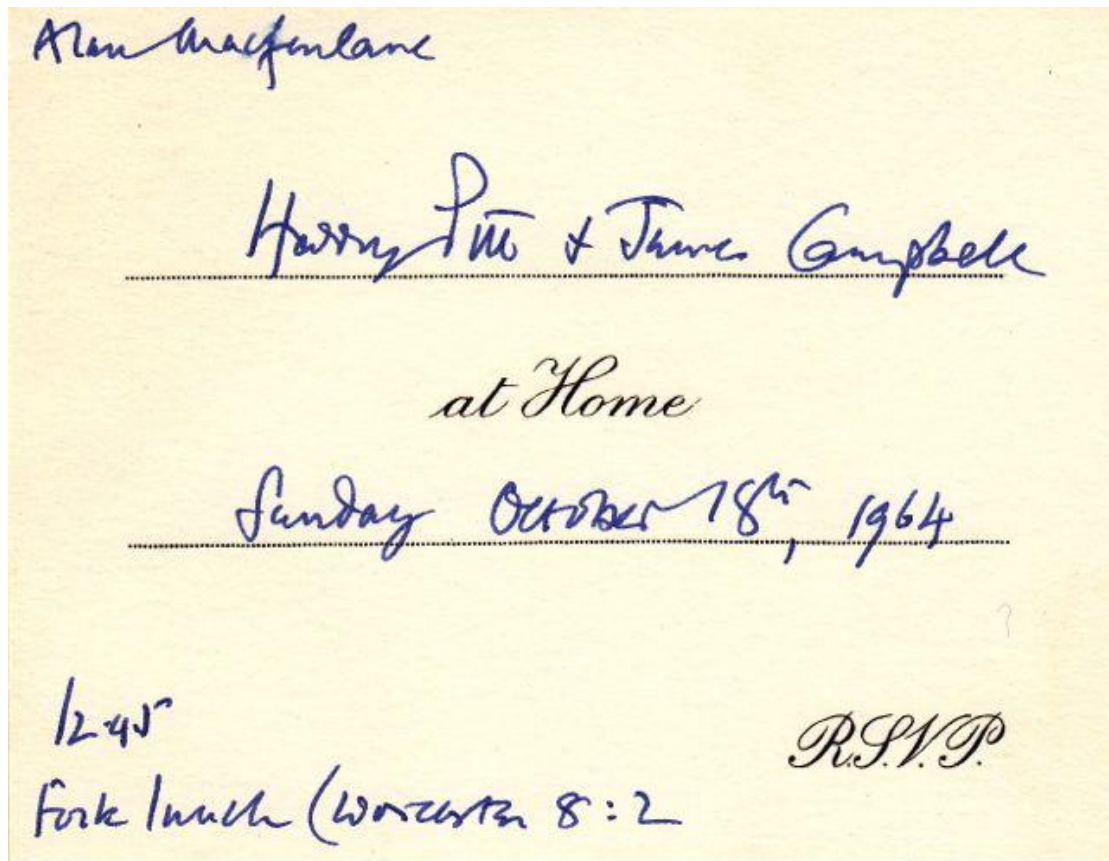 Alan Macfarlane
Harry Pitt & James Campbell
at Home
Sunday October 18th, 1964
12.45
R.S.V.P.
Fork lunch (Worcester 8:2